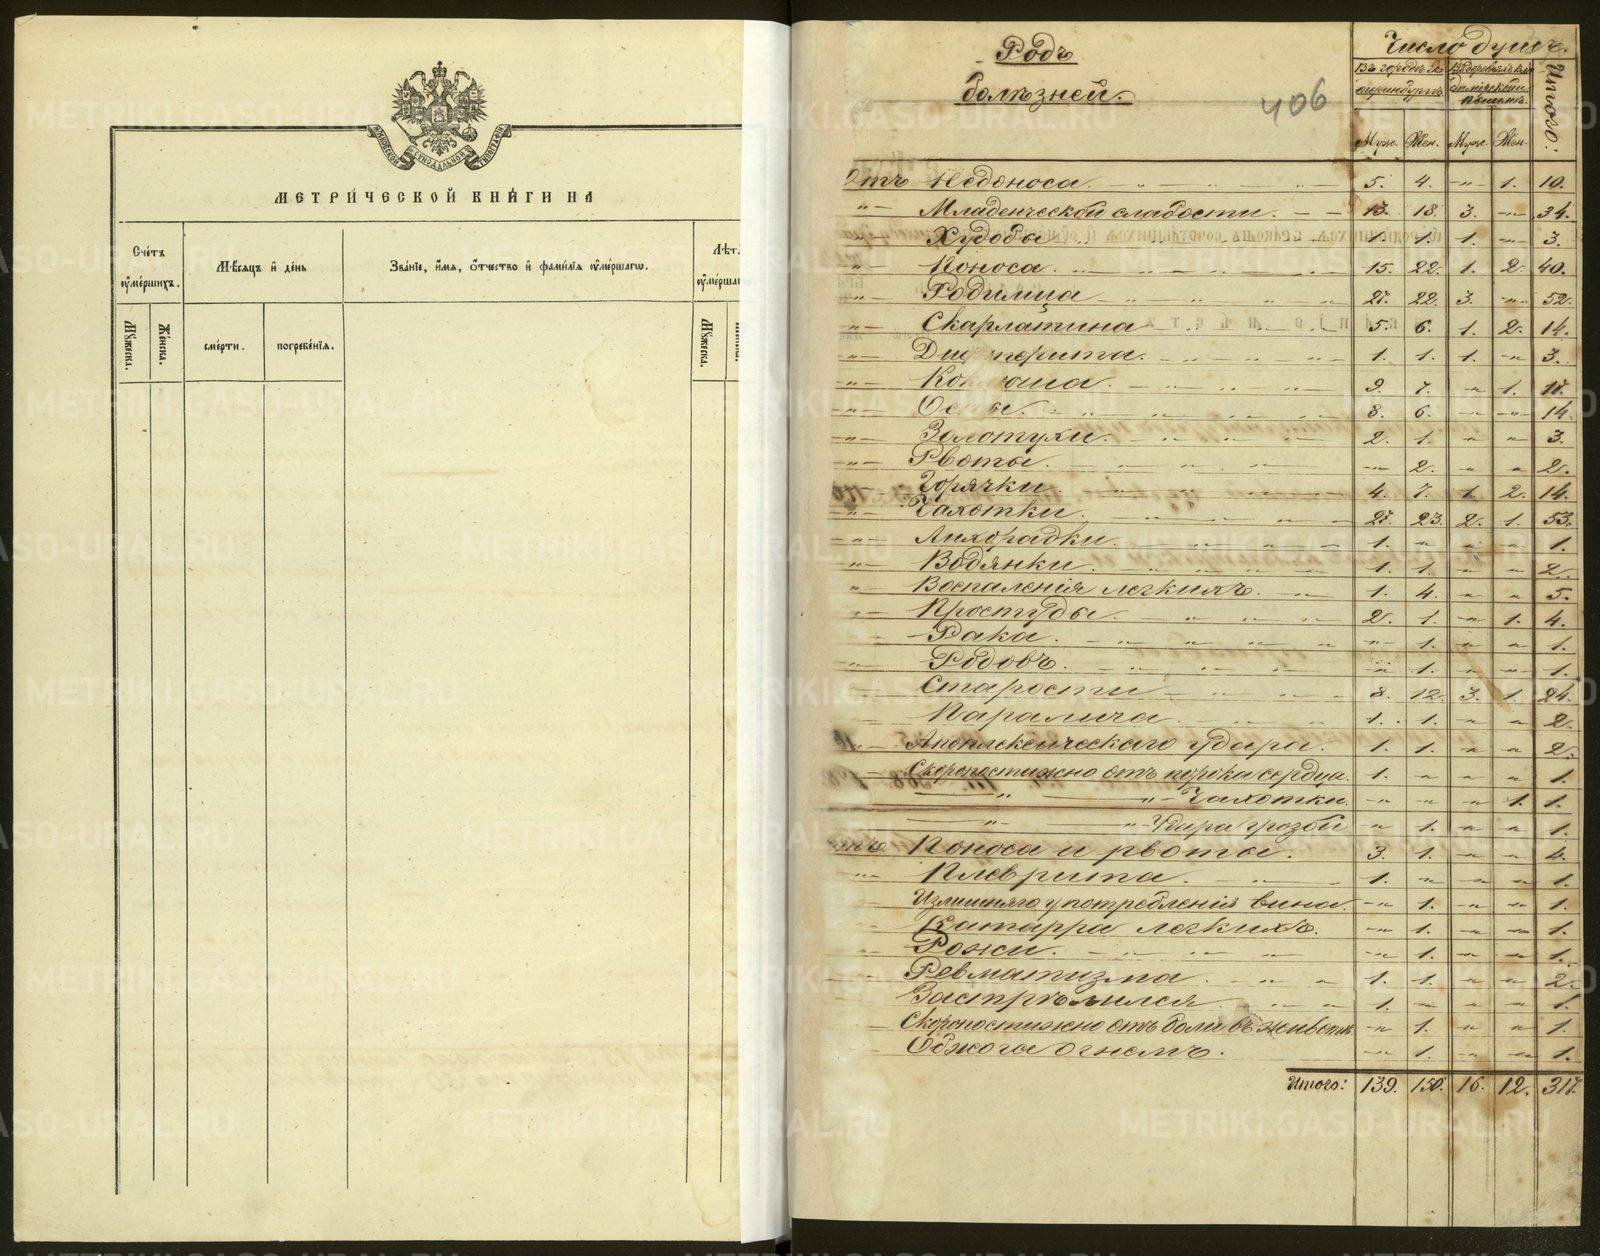 МЕТРИ́ЧЕСКОЙ КНИ́ГИ НА
Сче́тъ ᲂуме́ршихъ.
Мѣ́сяцъ и҆ де́нь
Зва́нїе, и҆́мя, ѻ҆́тчество и҆ фами́лїя ᲂу҆ме́ршагѡ.
Лѣт
Му́жеска.
Же́нска.
сме́рти.
погребе́нїя.
Му́жеска.
Родъ
болѣзней.
406
Число душъ.
Въ городѣ Ека
теринбургѣ.
Итого:
Муж. Жен. Муж. Жен.
Отъ Недоноса. 5. 4. „ 1. 10.
„ Младенческой слабости. 13. 18. 3. „ 34.
„ Худобы 1. 1. 1. „ 3.
„ Поноса. 15. 22. 1. 2. 40.
„ Родимца 27. 22. 3. „ 52.
„ Скарлатина 5. 6. 1. 2. 14.
„ 1. 1. 1. „ 3.
„ 9. 7. „ 1. 17.
„ Оспы. 8. 6. „ „ 14.
„ Золотухи. 2. 1. „ „ 3.
„ Рвоты. „ 2. „ „ 2.
Горячки 4. 7. 1. 2. 14.
Чахотки. 27. 23. 2. 1. 53.
„ Лихорадки 1. „ „ „ 1.
„ Водянки. 1. 1. „ „ 2.
„ Воспаленія легкихъ. 1. 4. „ „ 5.
„ Простуды 2. 1. „ 1. 4.
Рака. „ 1. „ „ 1.
„ Родовъ. „ 1. „ „ 1.
Старости 8. 12. 3. 1. 24.
Паралича 1. 1. „ „ 2.
„ Апоплексическаго удара. 1. 1. „ „ 2.
Скоропостижно отъ порока сердца. 1. „ „ „ 1.
„ „ Чахотки. „ „ „ 1. 1.
„ „ Удара грозой „ 1. „ „ 1.
Отъ Поноса и рвоты. 3. 1. „ „ 4.
„ Плеврита. 1. „ „ „ 1.
Излишняго употребленія вина. „ 1. „ „ 1.
Катарра легкихъ. „ 1. „ „ 1.
Рожи. „ 1. „ „ 1.
Ревматизма 1. 1. „ „ 2.
Застрѣлился 1. „ „ „ 1.
Скоропостижно отъ боли въ животѣ „ 1. „ „ 1.
Обжога огнемъ. „ 1. „ „ 1.
Итого: 139. 150. 16. 12. 317.
METRIKI.GASO-URAL.RU